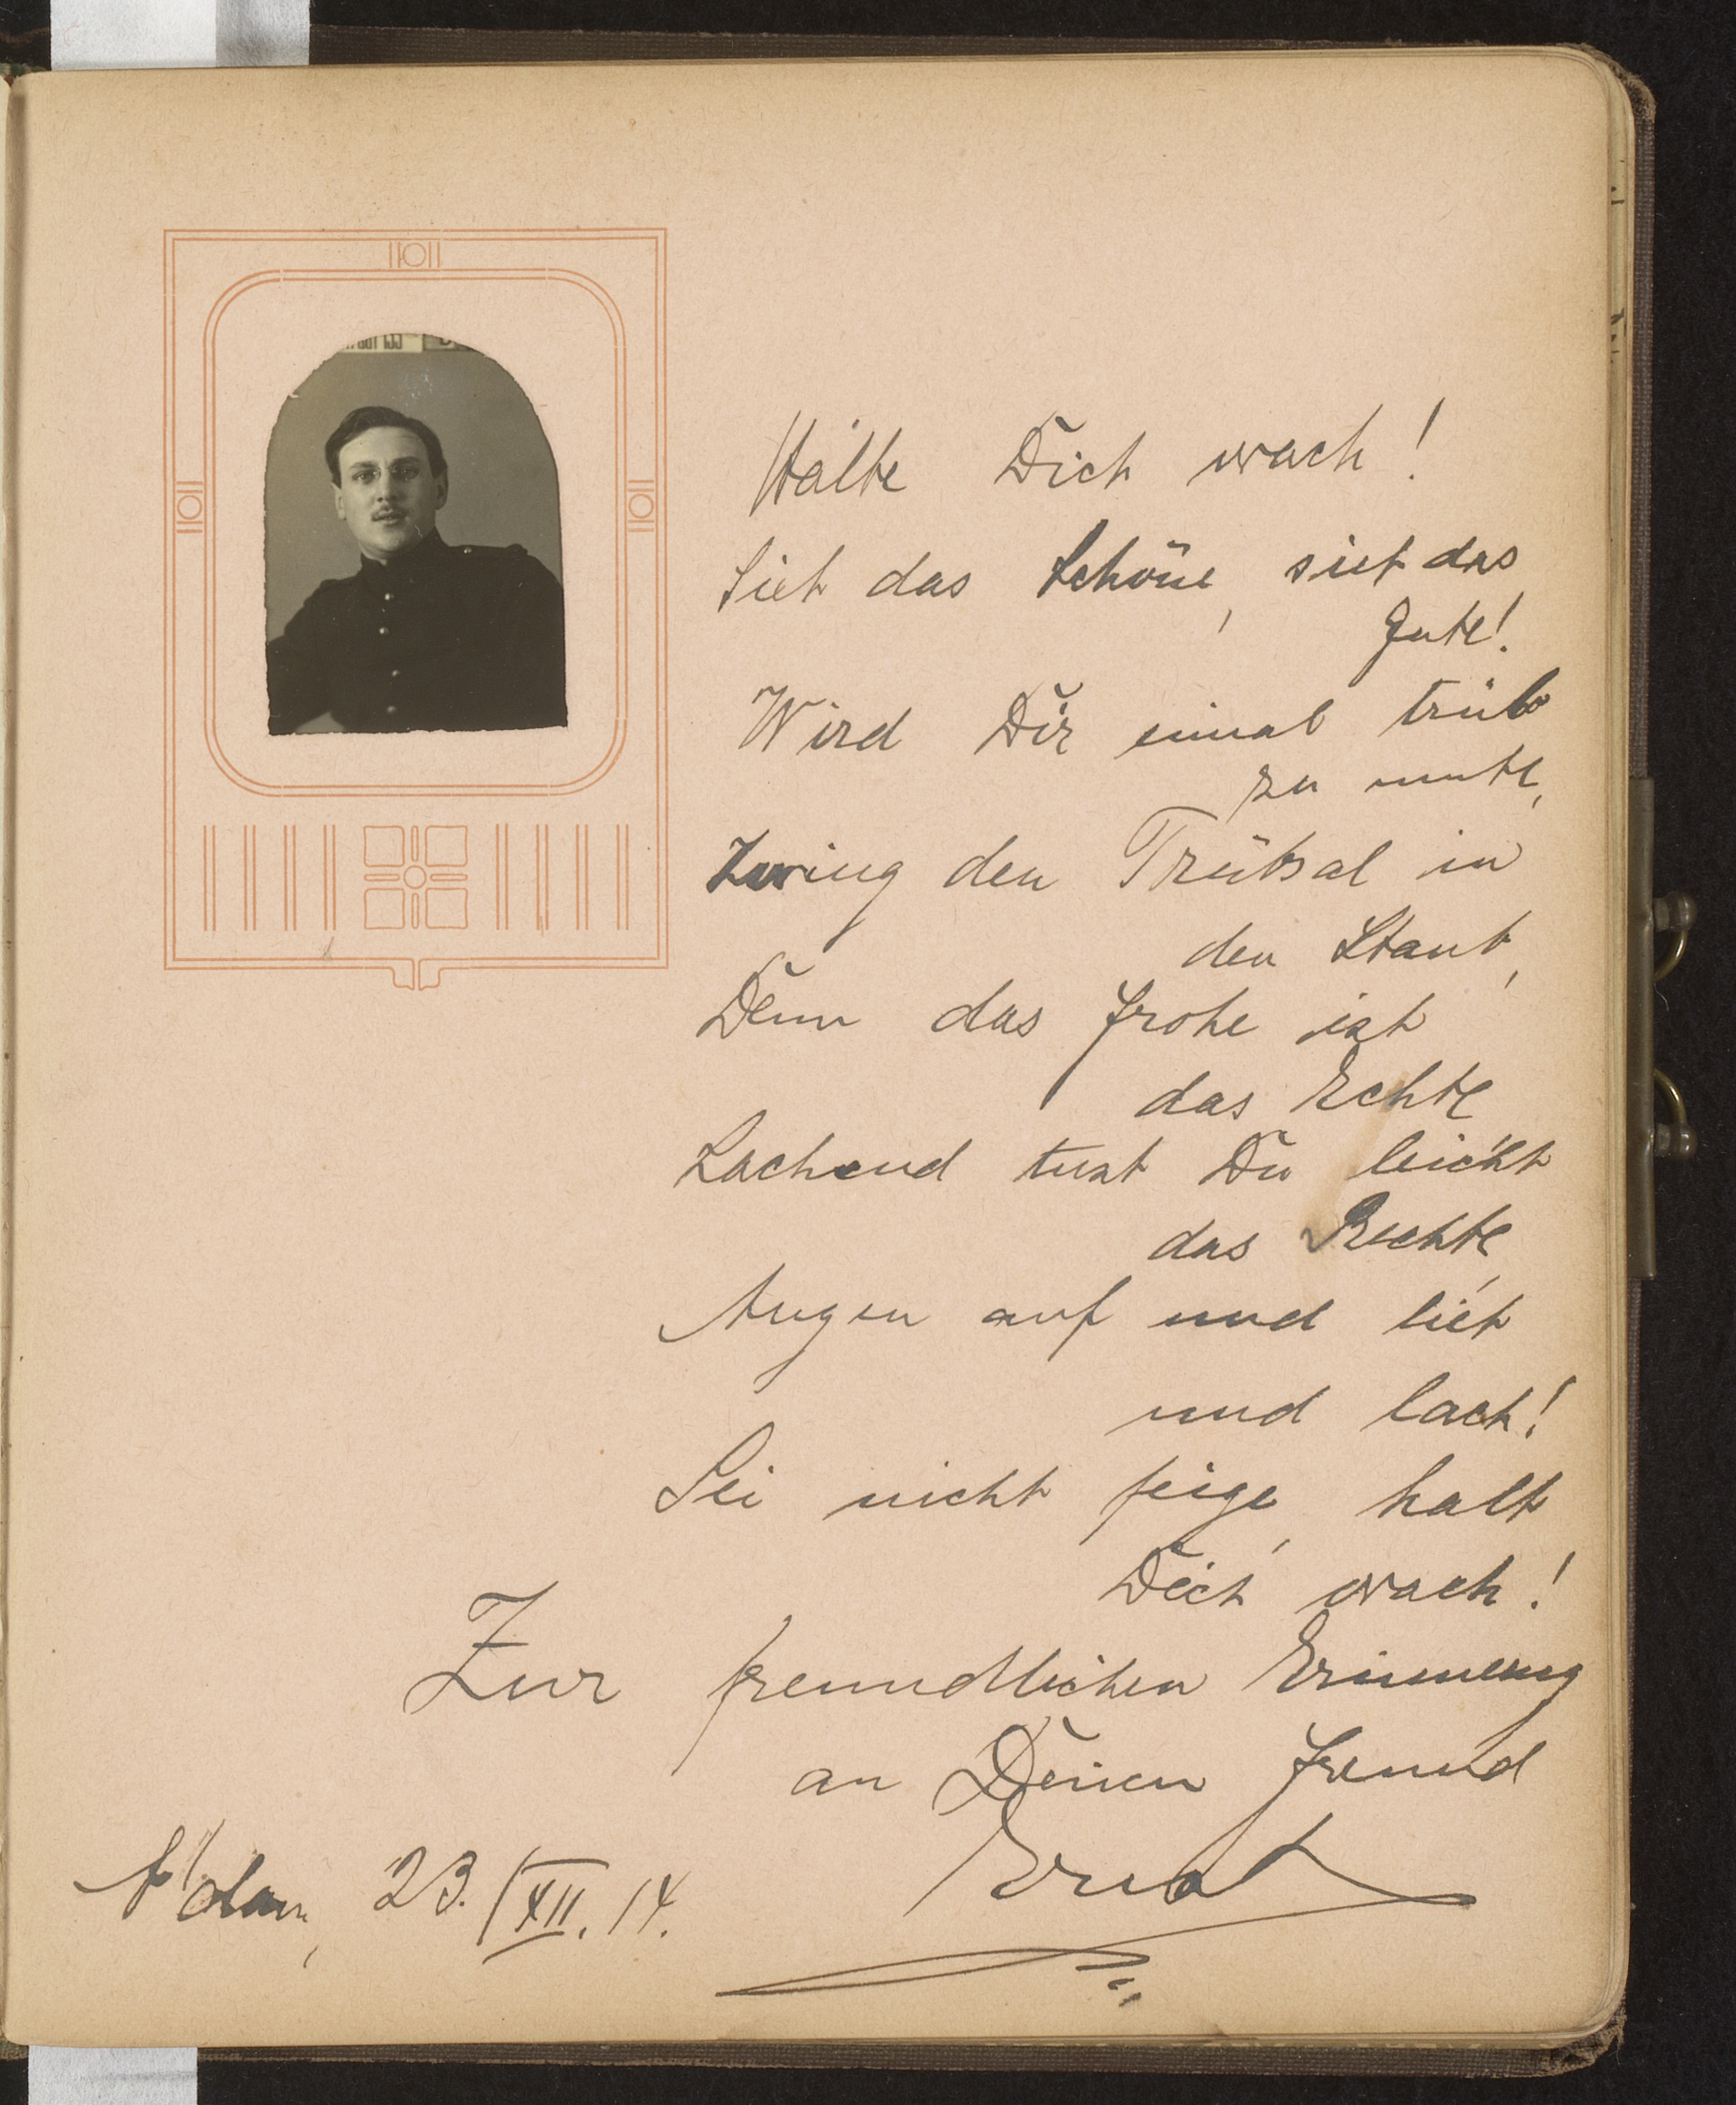 Halte Dich wach!
Sieh das Schöne, sieh das
Gute!
Wird Dir einmal trüb
zu mute,
Zwing den Trübsal in
den Staub,
Denn das Frohe ist
das Echte
Lachend tust Du leicht
das Rechte,
Augen auf und lieb
und lach!
Sei nicht feige, halt
Dich wach!
Zur freundlichen Erinnerung
an Deinen Freund
Ernst
A'dam, 23. XII. 14.